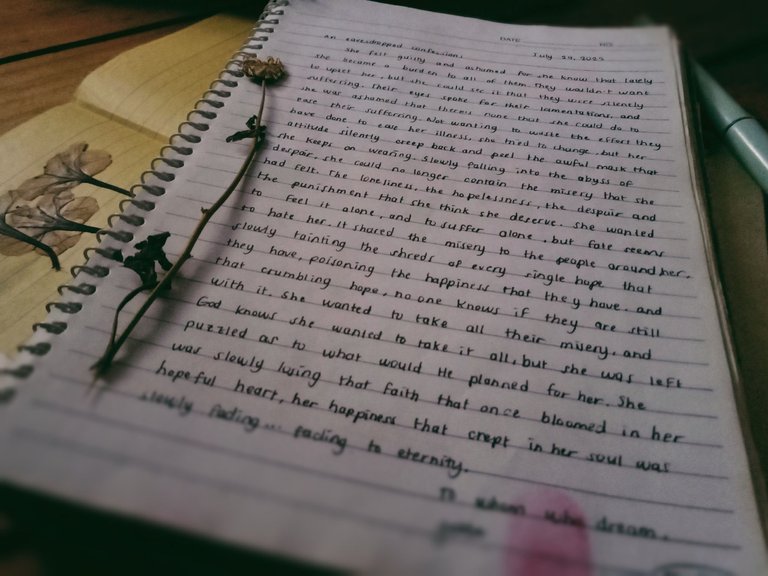 DATE NO.
an eavesdropped confession. July 29, 2025
She felt guilty and ashamed for she knew that lately
she become a burden to all of them. They wouldn't want
to upset her, but she could see it that they were silently
suffering. Their eyes spoke for their lamentations, and
she was ashamed that there's none that she could do to
ease their suffering. Not wanting to waste the effort they
have done to ease her illness, she tried to change but her
attitude silently creep back and peel the awful mask that
she keeps on wearing. Slowly falling into the abyss of
despair, she could no longer contain the misery that she
had felt. The loneliness, the hopelessness, the despair and
the punishment that she think she deserve. She wanted
to feel it alone, and to suffer alone, but fate seems
to hate her. It shared the misery to the people around her.
slowly tainting the shreds of every single hope that
they have, poisoning the happiness that they have. and
that crumbling hope, no one knows if they are still
with it. She wanted to take all their misery, and
God knows she wanted to take it all, but she was left
puzzled as to what would He planned for her. She
was slowly losing that faith that once bloomed in her
hopeful heart, her happiness that crept in her soul was
slowly fading... fading to eternity.
To whom who dream,